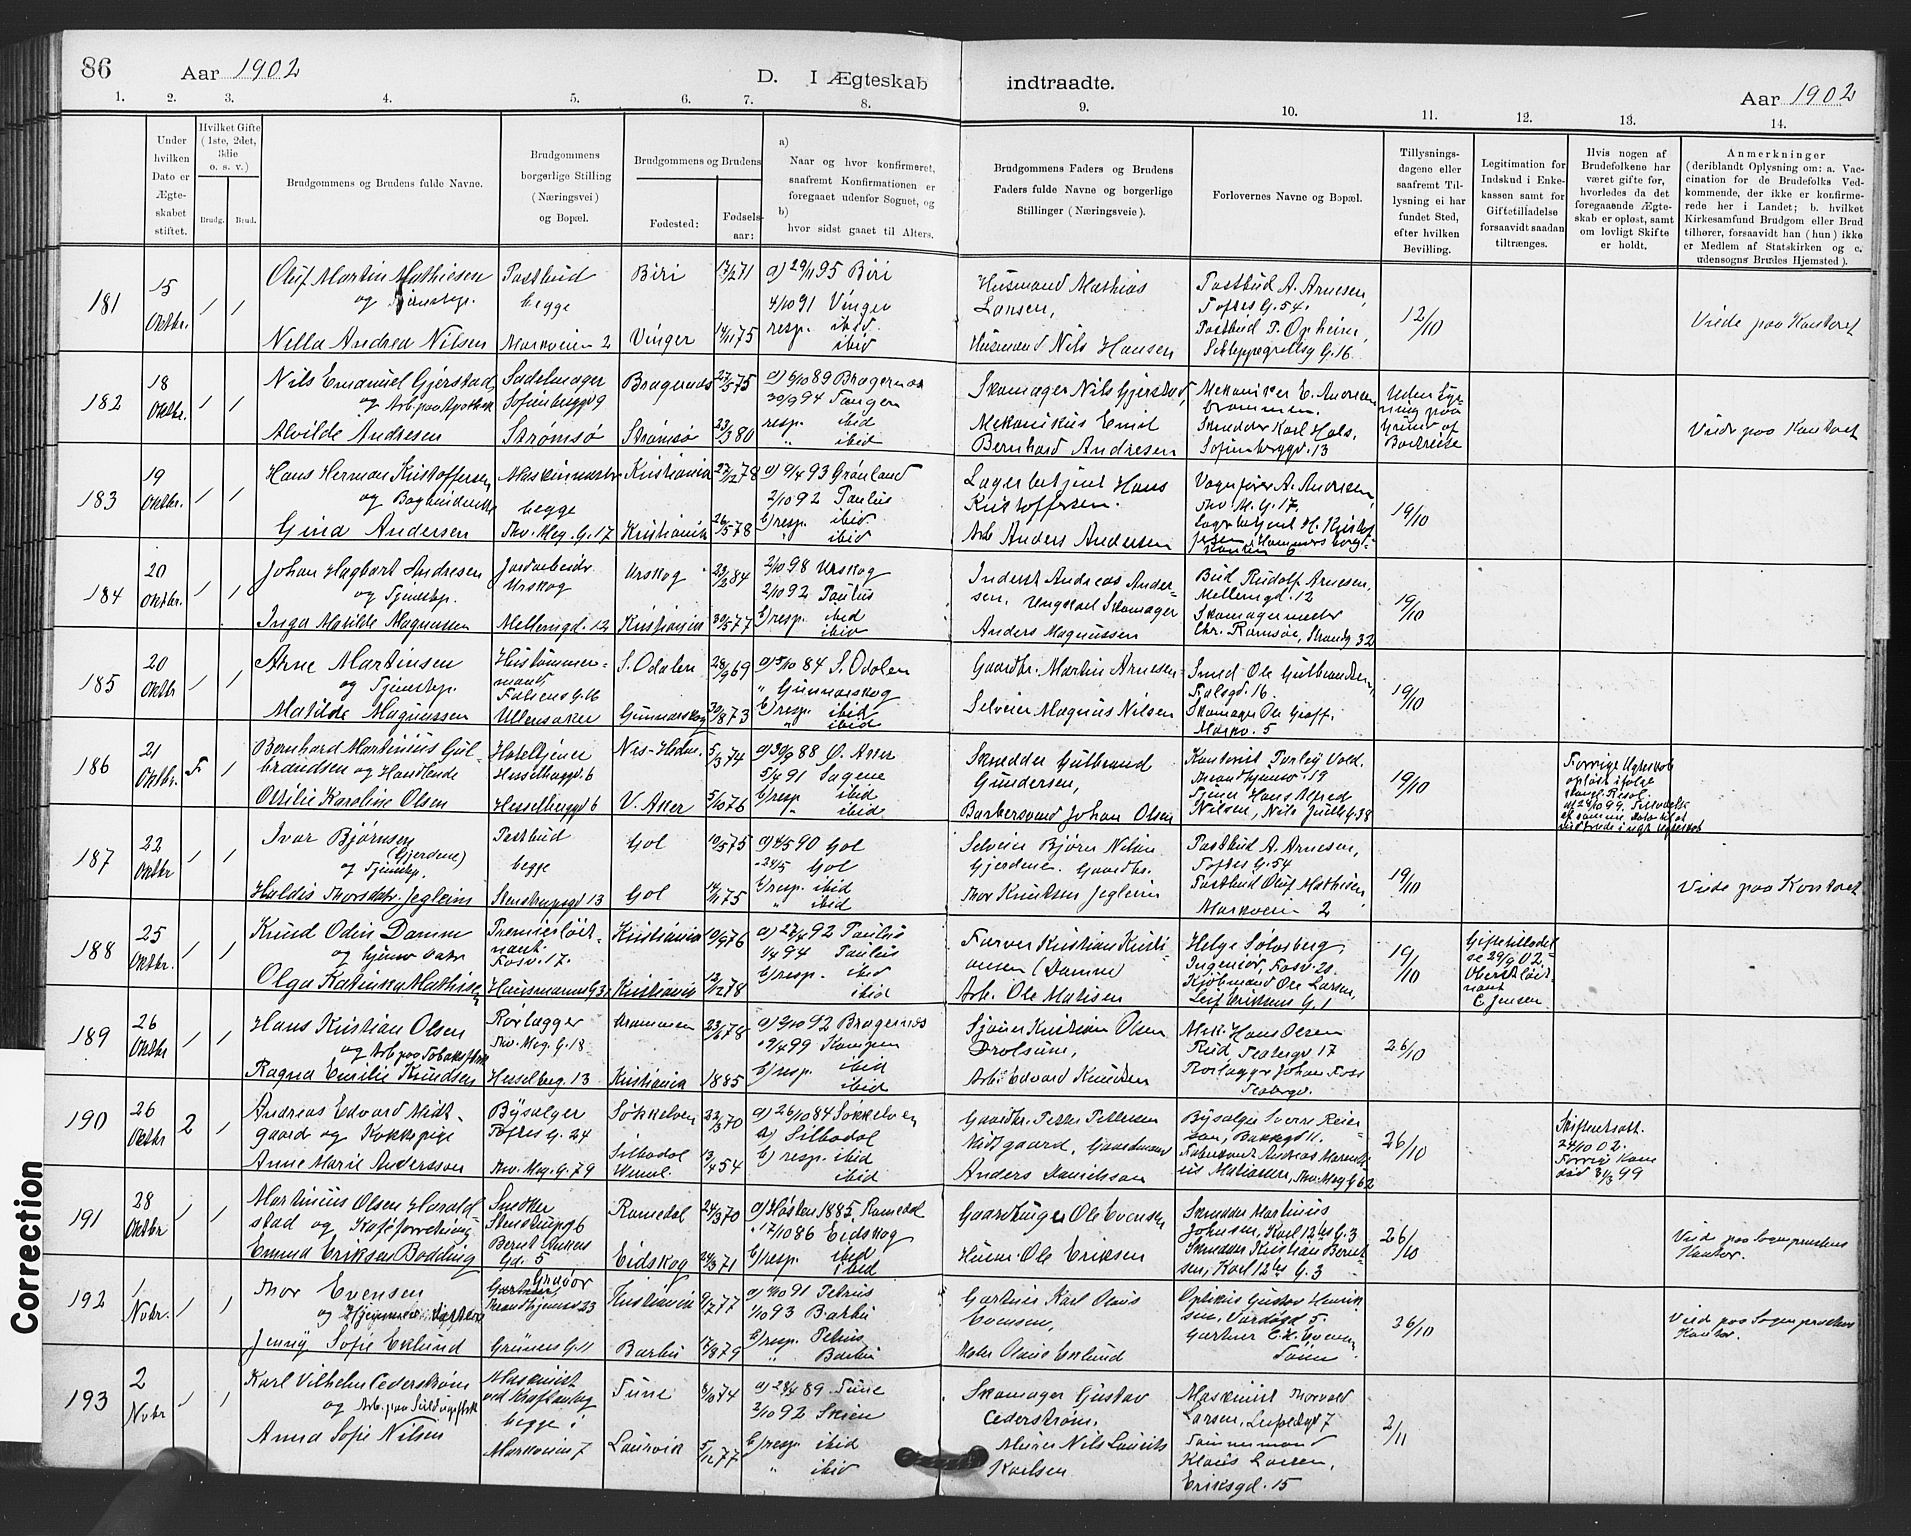 86
Aar 1902
D. I Ægteskab
indtraadte.
Aar 1902
1. 2. 3. 4. 5. 6. 7. 8. 9. 10. 11. 12. 13. 14.
Under
hvilken
Dato er
Ægte-
skabet
stiftet.
Hvilket Gifte
(1ste, 2det,
3die
o. s. v.)
Brudg.
Brud.
Brudgommens og Brudens fulde Navne.
Brudgommens
borgerlige Stilling
(Næringsvei)
og Bopæl.
Brudgommens og Brudens
Fødested:
Fødsels-
aar:
a)
Naar og hvor konfirmeret,
saafremt Konfirmationen er
foregaaet udenfor Sognet, og
b)
hvor sidst gaaet til Alters.
Brudgommens Faders og Brudens
Faders fulde Navne og borgerlige
Stillinger (Næringsveie).
Forlovernes Navne og Bopæl.
Tillysnings-
dagene eller
saafremt Til-
lysning ei har
fundet Sted,
efter hvilken
Bevilling.
Legitimation for
Indskud i Enke-
kassen samt for
Giftetilladelse
forsaavidt saadan
tiltrænges.
Hvis nogen af
Brudefolkene har
været gifte før,
hvorledes da det
foregaaende Ægte-
skab er opløst, samt
om lovligt Skifte
er holdt.
Anmerkninger
(deriblandt Oplysning om: a. Vac-
cination for de Brudefolks Ved-
kommende, der ikke er konfirme-
rede her i Landet; b. hvilket
Kirkesamfund Brudgom eller Brud
tilhører, forsaavidt han (hun) ikke
er Medlem af Statskirken og c.
udensogns Brudes Hjemsted).
181
15
Oktbr.
1 1
Oluf Martin Mathiesen
og Tjenestep.
Nilla Andrea Nilsen
Postbud
begge
Markveien 2
Biri
Vinger
17/2 71
14/11 75
a) 29/11 95 Biri
4/10 91 Vinger
resp. ibid
ibid
Husmand Mathias
Larsen,
Husmand Nils Hansen
Postbud A. Arnesen,
Toftes G. 54.
Postbud P. Opheim,
Schleppegrellsg G. 16
12/10
Viede paa Kontoret
182
18
Oktbr.
1 1
Nils Emanuel Gjerstad
og Arb. paa Apothek
Alvilde Andresen
Sadelmager
Sofienbergg 9
Strømsø
Bragernæs
Strømsø
27/5 75
23/3 80
a) 6/10 89 Bragernæs
30/9 94 Tangen
resp. ibid
" ibid
Skomager Nils Gjerstad,
Mekanikus Emil
Bernhard Andresen
Mekaniker E. Andresen
Drammen.
Skrædder Karl Hals,
Sofienberggd. 13
Uden Lys-
ning paa
Grund af
Bortreise
Viede paa Kontoret
183
19
Oktbr.
1 1
Hans Herman Kristoffersen
og Bogbinderske
Gina Andersen
begge
Thv. Meg. G. 17
Kristiania
Kristiania
27/12 78
26/5 78
a) 9/4 93 Grønland
2/10 92 Paulus
b) resp. ibid.
" ibid
Lagerbetjent Hans
Kristoffersen.
Arb. Anders Andersen
Vognfører A. Andresen,
Thv. M. G. 17.
Lagerbetjent H. Kristof-
fersen, Hammersborg-
19/10
184
20
Oktbr.
1 1
Johan Hagbart Andresen
og Tjenestep.
Inga Matilde Magnussen
Jordarbeider
Urskog
Møllergd. 12
Urskog
Kristiania
23/2 84
30/5 77
2/10 98 Urskog
2/10 92 Paulus
b) resp. ibid
ibid
Inderst Andreas Ander-
sen, Ungkarl Skomager
Anders Magnussen
Bud Rudolf Arnesen,
Møllergd. 12
Skomagermester
Chr. Ramsøe, Strandg 32
19/10
185
20
Oktbr
1 1
Arne Martinsen
og Tjenestep.
Matilde Magnussen
Hustømmer-
mand
Falsens G. 16
Ullensaker
S. Odalen
Gunnarskog
28/9 69
20/8 73
a) 5/10 84 S. Odalen
" Gunnarskog
b) resp. ibid
" ibid
Gaardbr. Martin Arnesen
Selveier Magnus Nilsen
Smed Ole Gulbrandsen,
Falsgd. 16.
Skomager Ole Groff,
Markv. 5
19/10
186
21
Oktbr.
F. 1
Bernhard Martinius Gul-
brandsen og Handlende
Ottilie Karoline Olsen
Hoteltjener
Hesselbergg 6
Hesselberggd 6
Nes-Hedm.
V. Aker
5/3 74
5/10 76
a) 30/9 88 Ø. Aker
5/4 91 Sagene
b) resp ibid
" ibid
Skrædder Gulbrand
Gundersen,
Barbersvend Johan Olsen
Torleif Vold.
Trondhjemsv. 19
Tjener Hans Alfred
Nilsen, Nils Juels G. 38
19/10
Forrige Ægteskab
opløst ifølge
Resol.
af 24/10 99.
187
22
Oktbr
1 1
Ivar Bjørnsen
(Gjerdene)
og Tjenestep.
Haldis Thorsdtr. Jegleim
Postbud
begge
Stenstrupsgd 13
Gol
Gol
10/5 75
14/11 75
a) 4/5 90 Gol
- 24/5 Gol
b) resp. ibid
" ibid
Selveier Bjørn Nilsen
Gjerdene. Gaardbr.
Thor Knutsen Jegleim
Postbud A. Arnesen,
Toftes G. 54
Postbud Oluf Mathisen,
Markveien 2
19/10
Viede paa Kontoret
188
25
Oktbr.
1 1
Knud Odin Damm
og hjemv. Datr
Olga Katinka Mathisen
Premierløit-
nant.
Fosv. 17.
Hausmanns G 31
Kristiania
Kristiania
10/9 76
12/12 78
a) 27/4 92 Paulus
1/4 94 Paulus
b) resp. ibid
ibid
Farver Kristian Kristi-
ansen (Damm)
Arb. Ole Matisen
Helge Sølvsberg,
Ingeniør, Fosv. 20.
Kjøbmand Ole Larsen,
Leif Eriksens G. 1
19/10
Giftetilladel-
se 29/9 02.
Oberstløit-
nant
C. Jensen
189
26
Oktbr
1 1
Hans Kristian Olsen
og Arb. paa Tobaksfbrk
Ragna Emilie Knudsen
Rørlægger
Thv. Meg. G. 18
Hesselberg. 13
Drammen
Kristiania
23/6 78
1885
a) 2/10 92 Bragernæs
" 9/4 99 Kampen
b) resp. ibid
ibid
Sjøm. Kristian Olsen
Arb. Edvard Knudsen
Mek. Hans Olsen
Rud, Teatergd. 17
Rørlægger Johan Foss
Teatergd.
26/10
190
26
Oktbr
2 1
Andreas Edvard Midt-
gaard og Kokkepige
Anne Marie Andersson
Bysælger
Toftes G. 24
Thv. Meg. G. 79
Søkkelven
Silbodal
Werml.
22/3 70
13/4 54
a) 26/10 84 Søkkelven
a) Silbodal
b) resp. ibid
ibid
Gaardbr. Petter Pettersen
Midtgaard, Gaardmand
Anders Danielsson
Bysælger Sverre Reier-
sen, Bakkegd 11.
Fabrikant Andreas
Mathisen, Thv. Meg G. 62
26/10
Skifteattest.
24/10 02.
Forrige Kone
død 31/3 99
191
28
Oktbr
1 1
Martinius Olsen Harald-
stad og Kaféforretning
Emma Eriksen Bodding
Snedker
Stenstrupg 6
Bernt Ankers
Gd. 5
Romedal
Eidskog
24/3 70
24/3 71
a) Høsten 1885, Romedal
" 17/10 86 Eidskog
b) resp. ibid
ibid
Gaardbruger Ole Evensen
Husm. Ole Eriksen
Skrædder Martinius
Johnsen, Karl 12tes G. 3
Skrædder Kristian Bernt-
sen, Karl 12tes G. 3
26/10
Viede paa Sogneprestens
Kontor.
192
1
Novbr.
1 1
Thor Evensen
og Hjemmev. Datter
Jenny Sofie Eklund
Gravør
Trondhjemsv 23
Grüners G. 11
Kristiania
Barbu
9/2 77
17/8 79
a) 4/10 91 Petrus
1/10 93 Barbu
b) resp. Petrus
" Barbu
Gartner Karl Olaus
Evensen,
Maler Olaus Eklund
Optikus Gustav Henrik-
sen, Vardøgd 5.
Gartner E. K. Evensen
Tøien
26/10
Viede paa Sogneprestens
Kontor.
193
2
Novbr
1 1
Karl Vilhelm Cederstrøm
og Arb. paa Sæd
Anna Sofie Nilsen
Maskinist
ved Kraftanlæg
begge i
Markveien 7
Tune
Laurvik
8/10 74
5/12 77
a) 28/4 89 Tune
2/10 92 Skien
b) resp. ibid
" ibid
Skomager Gustav
Cederstrøm,
Murer Nils Laurits
Karlsen
Maskinist Thorvald
Larsen, 7
Tømmermand
Klaus Larsen,
Eriksgd. 15
2/11
Correction